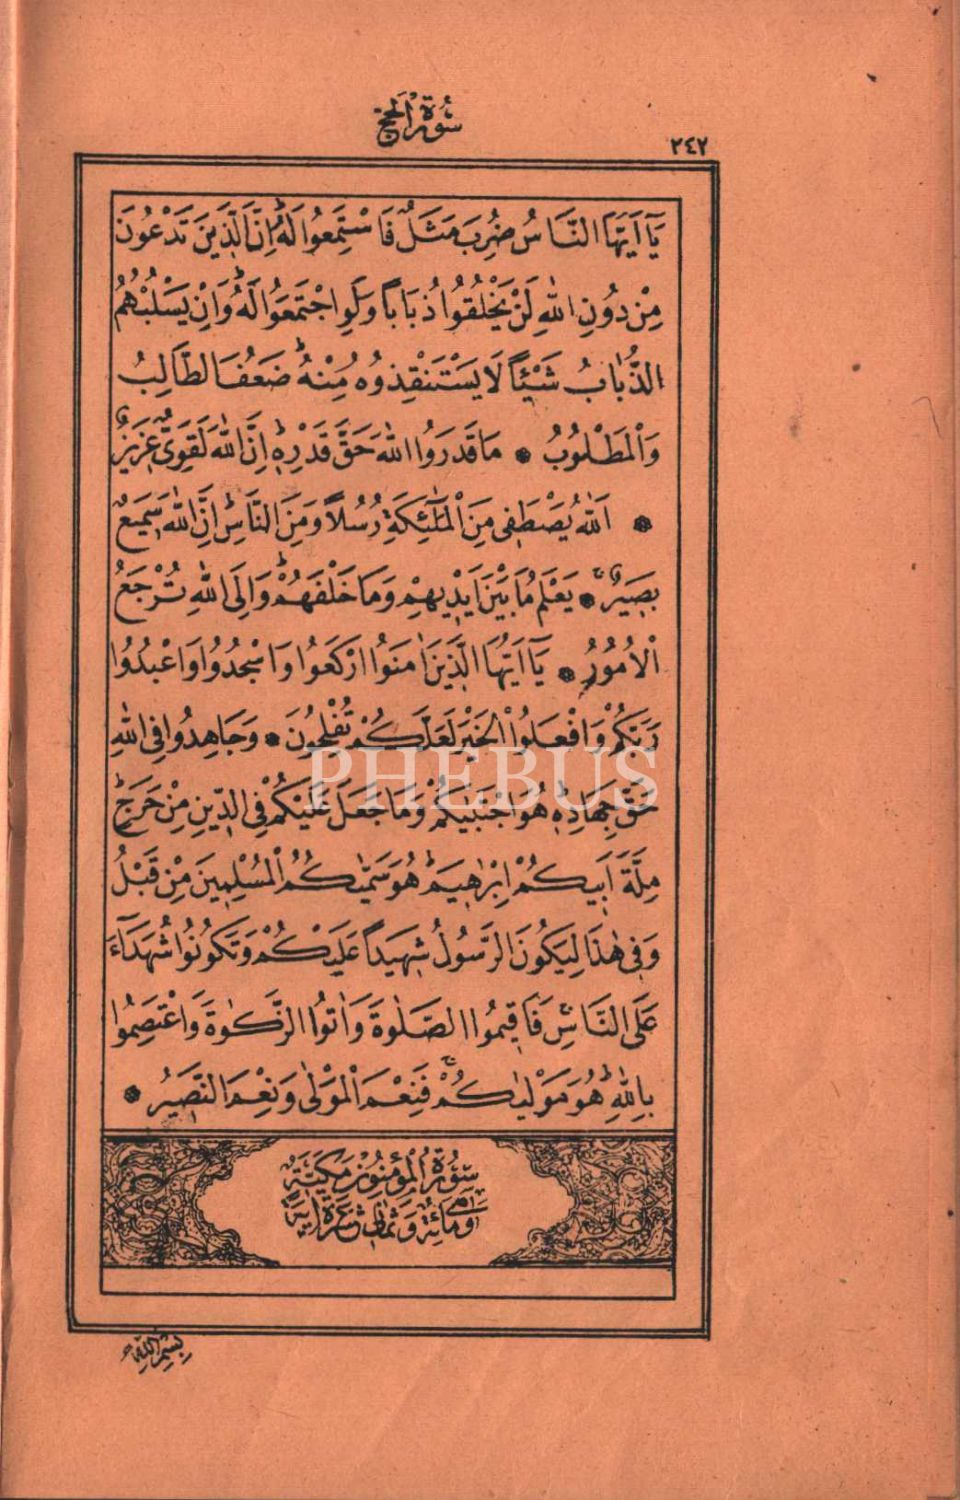 سُورَةُ الْحَجِّ
٢٤٢
يَآ اَيُّهَا النَّاسُ ضُرِبَ مَثَلٌ فَاسْتَمِعُوا لَهُۜ اِنَّ الَّذ۪ينَ تَدْعُونَ
مِنْ دُونِ اللّٰهِ لَنْ يَخْلُقُوا ذُبَاباً وَلَوِ اجْتَمَعُوا لَهُۜ وَاِنْ يَسْلُبْهُمُ
الذُّبَابُ شَيْـٔاً لَا يَسْتَنْقِذُوهُ مِنْهُۜ ضَعُفَ الطَّالِبُ
وَالْمَطْلُوبُ ❁ مَا قَدَرُوا اللّٰهَ حَقَّ قَدْرِه۪ۜ اِنَّ اللّٰهَ لَقَوِيٌّ عَز۪يزٌ
❁ اَللّٰهُ يَصْطَف۪ي مِنَ الْمَلٰٓئِكَةِ رُسُلاً وَمِنَ النَّاسِۜ اِنَّ اللّٰهَ سَم۪يعٌ
بَص۪يرٌۚ ❁ يَعْلَمُ مَا بَيْنَ اَيْد۪يهِمْ وَمَا خَلْفَهُمْۜ وَاِلَى اللّٰهِ تُرْجَعُ
الْاُمُورُ ❁ يَآ اَيُّهَا الَّذ۪ينَ اٰمَنُوا ارْكَعُوا وَاسْجُدُوا وَاعْبُدُوا
رَبَّكُمْ وَافْعَلُوا الْخَيْرَ لَعَلَّكُمْ تُفْلِحُونَ ❁ وَجَاهِدُوا فِي اللّٰهِ
حَقَّ جِهَادِه۪ۜ هُوَ اجْتَبٰيكُمْ وَمَا جَعَلَ عَلَيْكُمْ فِي الدّ۪ينِ مِنْ حَرَجٍۜ
مِلَّةَ اَب۪يكُمْ اِبْرٰه۪يمَۜ هُوَ سَمّٰيكُمُ الْمُسْلِم۪ينَ مِنْ قَبْلُ
وَف۪ي هٰذَا لِيَكُونَ الرَّسُولُ شَه۪يداً عَلَيْكُمْ وَتَكُونُوا شُهَدَآءَ
عَلَى النَّاسِۚ فَاَق۪يمُوا الصَّلٰوةَ وَاٰتُوا الزَّكٰوةَ وَاعْتَصِمُوا
بِاللّٰهِۜ هُوَ مَوْلٰيكُمْۚ فَنِعْمَ الْمَوْلٰى وَنِعْمَ النَّص۪يرُ ❁
سُورَةُ الْمُؤْمِنُونَ مَكِّيَّةٌ
وَهِيَ مِائَةٌ وَثَمَانِ عَشْرَةَ اٰيَةً
بِسْمِ اللّٰهِ
PHEBUS